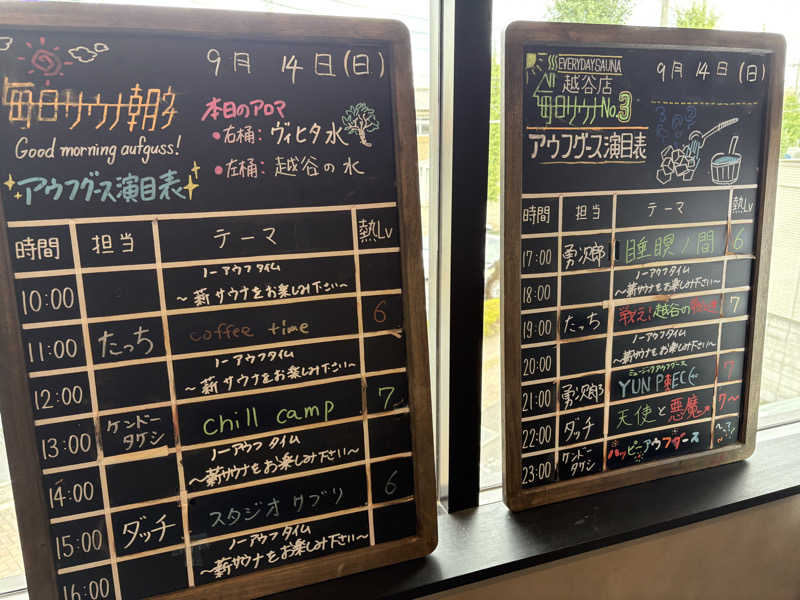 9月 14日(日)
毎日サウナ朝多
Good morning aufguss!
アウフグース演目表
本日のアロマ
・右桶: ヴィヒタ水
・左桶: 越谷の水
時間 担当 テーマ 熱Lv
10:00 ノーアウフタイム
～薪サウナをお楽しみ下さい～
11:00 たっち coffee time 6
12:00 ノーアウフタイム
～薪サウナをお楽しみ下さい～
13:00 ケンドータケシ chill camp 7
14:00 ノーアウフタイム
～薪サウナをお楽しみ下さい～
15:00 ダッチ スタジオサブリ 6
16:00 ノーアウフタイム
～薪サウナをお楽しみ下さい～
EVERYDAY SAUNA
越谷店
毎日サウナNo.3
アウフグース演目表
9月 14日(日)
時間 担当 テーマ 熱Lv
17:00 勇次郎 睡瞑ノ間 6
18:00 ノーアウフタイム
～薪サウナをお楽しみ下さい～
19:00 たっち 戦え!越谷の 7
20:00 ノーアウフタイム
～薪サウナをお楽しみ下さい～
ミュージックアウフグース
21:00 勇次郎 YUN P東EC 7
22:00 ダッチ 天使と悪魔 7～
23:00 ケンドータケシ ハッピーアウフグース